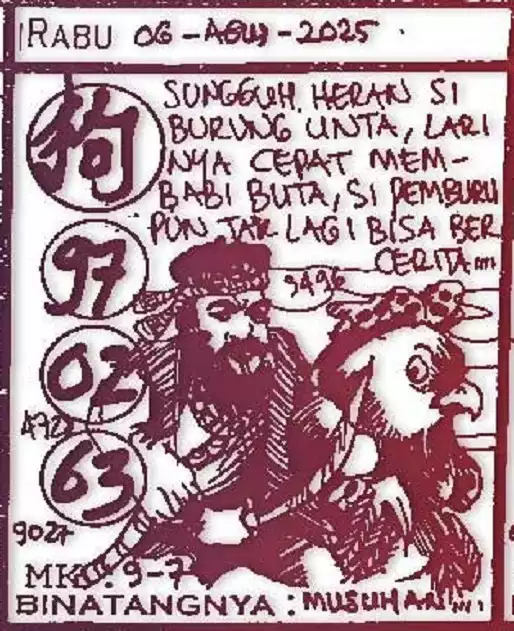 RABU 06-AGUS-2025
狗
SUNGGUH HERAN SI
BURUNG UNTA, LARI
NYA CEPAT MEM-
BABI BUTA, SI PEMBURU
PUN TAK LAGI BISA BER
CERITA....
97
9496
02
63
9027
: 9-7
BINATANGNYA : MUSUHARI....